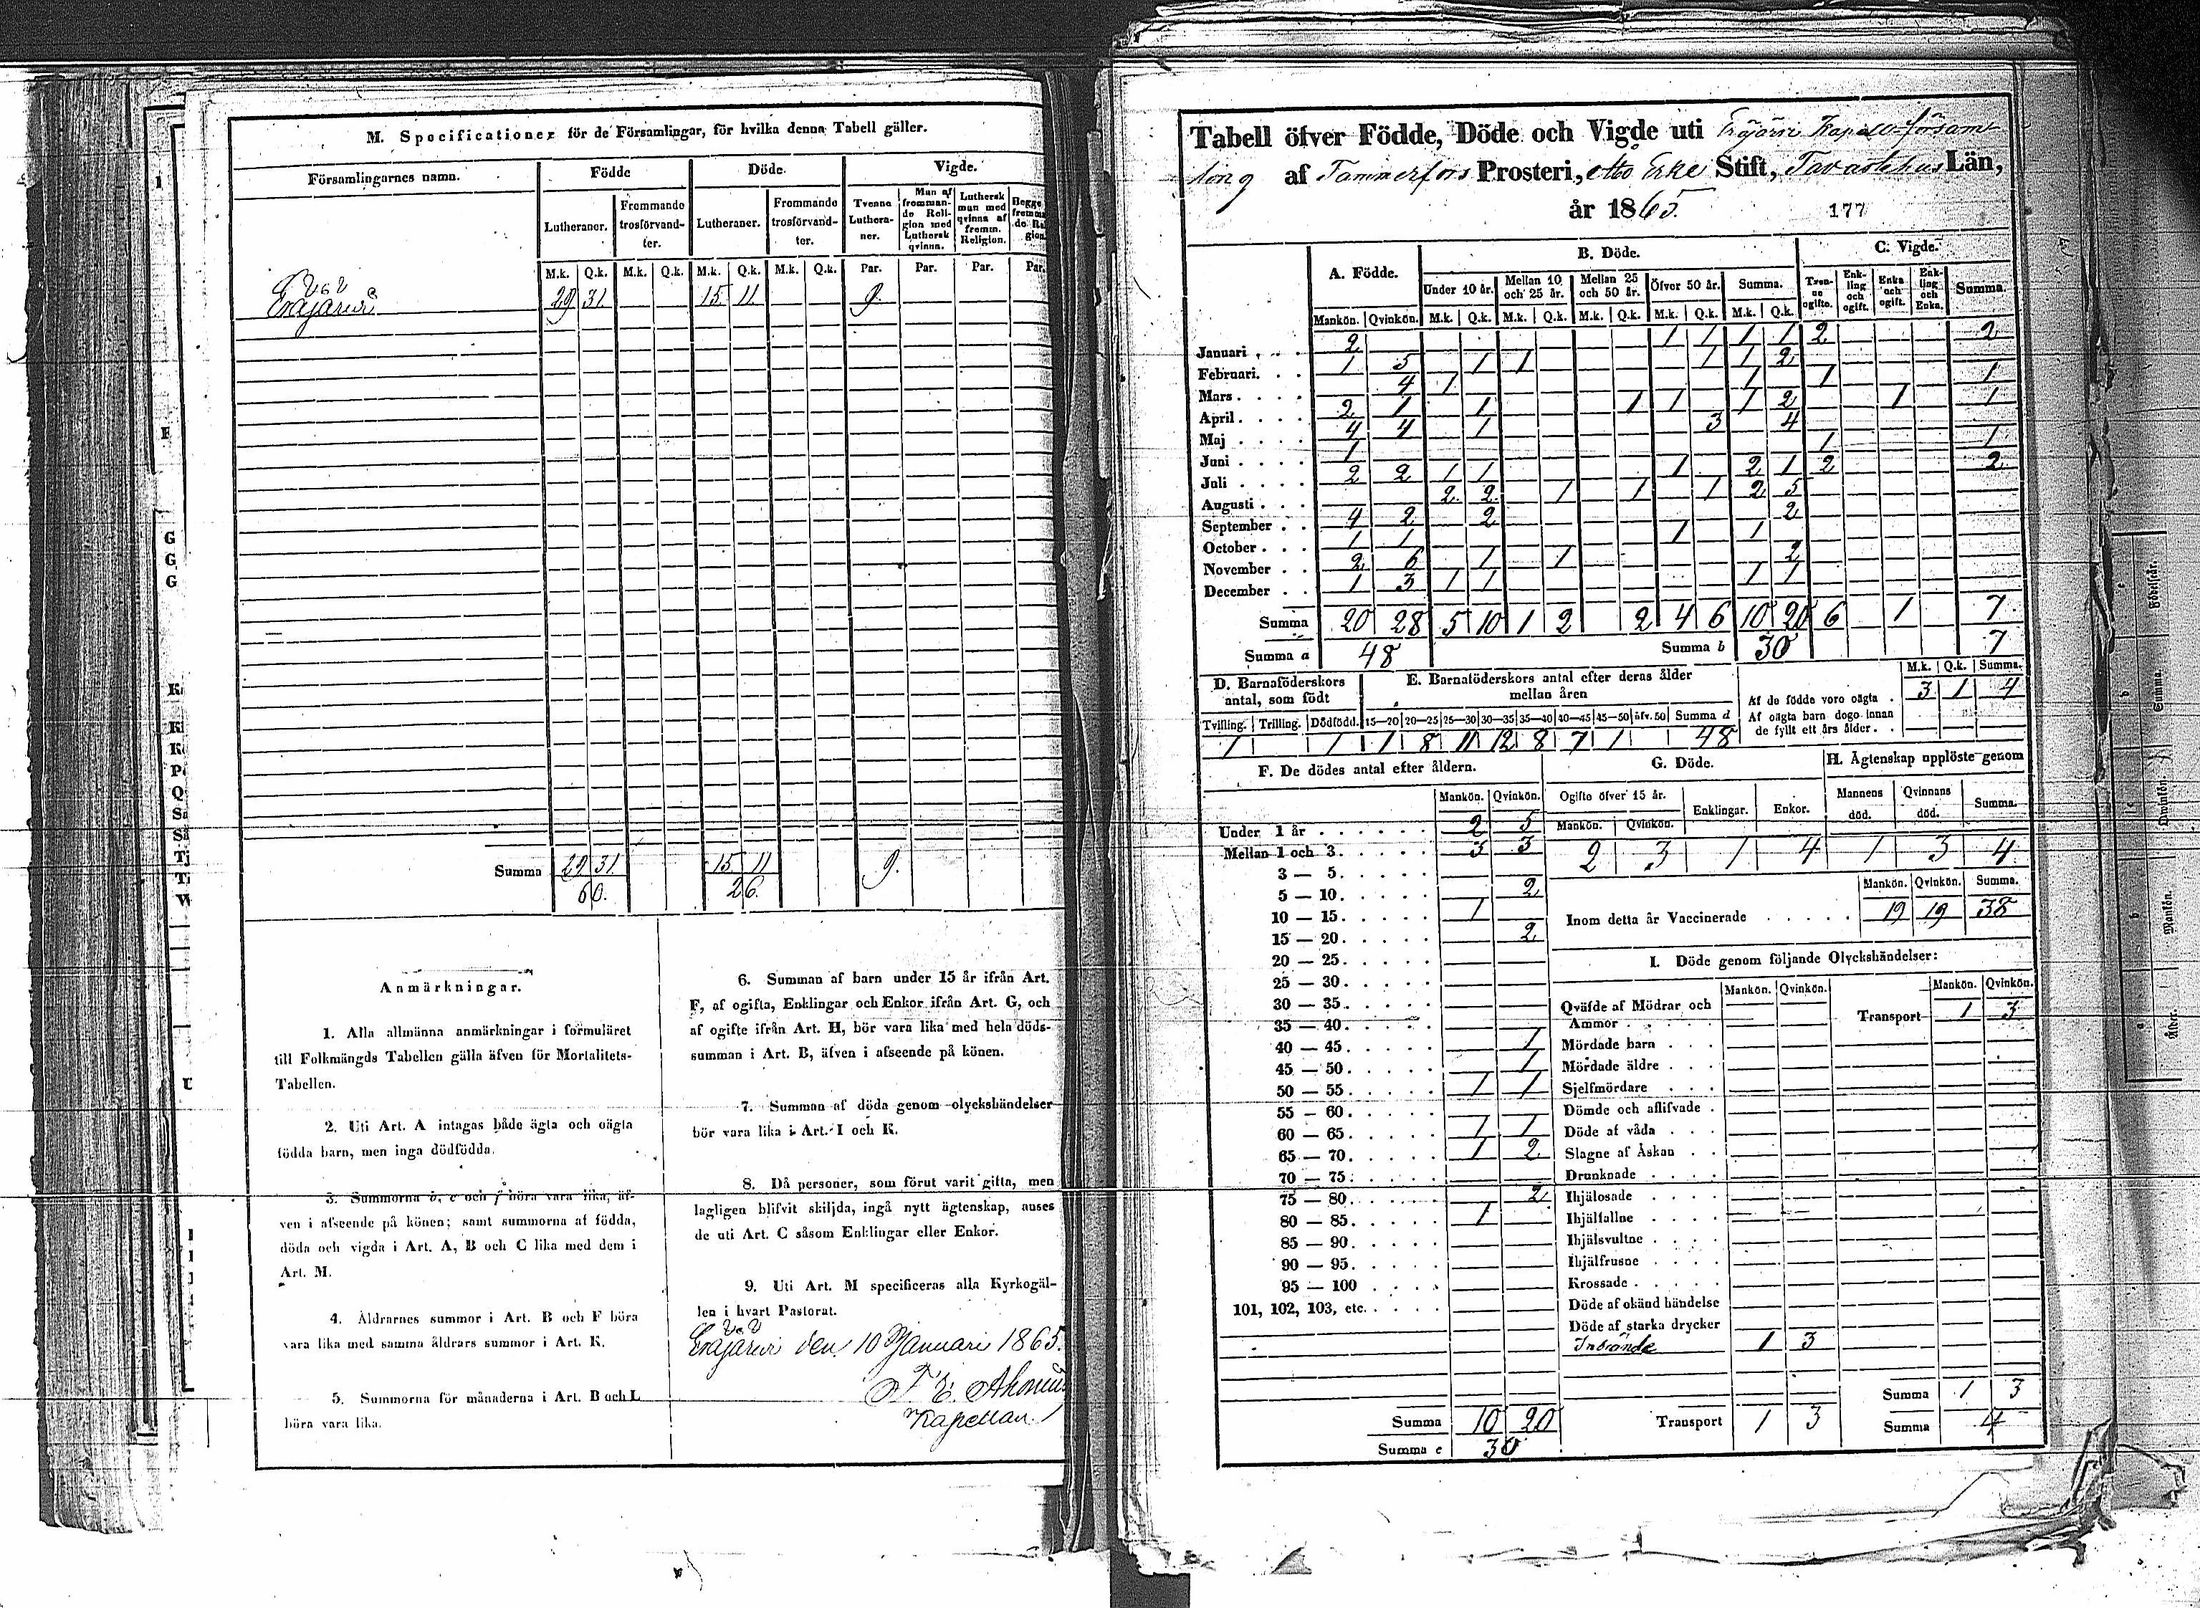 M. Specificationer för de Församlingar, för hvilka denna Tabell gäller.
Församlingarnes namn. Födde Döde. Vigde.
Lutheraner. Frommande trosförvandter. Lutheraner. Frommande trosförvandter. Tvenne Lutheraner. Man af frommande Religion med Luthersk qvinna. Luthersk man med qvinna af fremm. Religion.
M.k. Q.k. M.k. Q.k. M.k. Q.k. M.k. Q.k. Par. Par. Par. Par.
Eräjärvi 29 31 15 11 9.
Summa 29 31 15 11 9.
60. 26.
Anmärkningar.
1. Alla allmänna anmärkningar i formuläret
till Folkmängds Tabellen gälla äfven för Mortalitets-
Tabellen.
2. Uti Art. A intagas både ägta och oägta
födda barn, men inga dödfödda.
3. Summorna b, e och f böra vara lika, äf-
ven i afseende på könen; samt summorna af födda,
döda och vigda i Art. A, B och C lika med dem i
Art. M.
4. Åldrarnes summor i Art. B och F böra
vara lika med samma åldrars summor i Art. K.
5. Summorna för månaderna i Art. B och L
böra vara lika.
6. Summan af barn under 15 år ifrån Art.
F, af ogifta, Enklingar och Enkor ifrån Art. G, och
af ogifte ifrån Art. H, bör vara lika med hela döds-
summan i Art. B, äfven i afseende på könen.
7. Summan af döda genom olyckshändelser
bör vara lika i Art. I och K.
8. Då personer, som förut varit gifta, men
lagligen blifvit skiljda, ingå nytt ägtenskap, anses
de uti Art. C såsom Enklingar eller Enkor.
9. Uti Art. M specificeras alla Kyrkogäl-
len i hvart Pastorat.
Eräjärvi den 10 Januari 1865.
Kapellan.
Tabell öfver Födde, Döde och Vigde uti Eräjärvi Kapell-försam-
ling af Tammerfors Prosteri, Åbo Erke Stift, Tavastehus Län,
år 1865. 177
A. Födde. B. Döde. C. Vigde.
Under 10 år. Mellan 10 och 25 år. Mellan 25 och 50 år. Öfver 50 år. Summa. Tvenne ogifte. Enkling och ogift. Enka och ogift. Enkling och Enka. Summa.
Mankön. Qvinkön. M.k. Q.k. M.k. Q.k. M.k. Q.k. M.k. Q.k. M.k. Q.k.
Januari 2 1 1 1 1 2 2
Februari. 1 5 1 1 1 1 2
Mars 4 1 1 1 1
April 2 1 1 1 1 1 2 1 1
Maj 4 4 1 3 4
Juni 1 1 1
Juli 2 2 1 1 1 2 1 2 2
Augusti 2 2 1 1 1 2 5
September 4 2 2 2
October 1 1 1 1
November 2 6 1 1 2
December 1 3 1 1 1 1
Summa 20 28 5 10 1 2 2 4 6 10 20 6 1 7
Summa a 48 Summa b 30 7
D. Barnaföderskors antal, som födt
E. Barnaföderskors antal efter deras ålder mellan åren
M.k. Q.k. Summa.
Af de födde voro oägta 3 1 4
Af oägta barn dogo innan
de fyllt ett års ålder
Tvilling. Trilling. Dödfödd. 15—20 20—25 25—30 30—35 35—40 40—45 45—50 öfv. 50 Summa d
1 1 1 8 11 12 8 7 1 48
F. De dödes antal efter åldern.
Mankön. Qvinkön.
Under 1 år 2 5
Mellan 1 och 3. 3 3
3 — 5.
5 — 10. 2
10 — 15. 1
15 — 20. 2
20 — 25.
25 — 30.
30 — 35.
35 — 40.
40 — 45. 1
45 — 50. 1
50 — 55. 1 1
55 — 60.
60 — 65. 1 1
65 — 70. 1 2
70 — 75.
75 — 80. 2
80 — 85. 1
85 — 90.
90 — 95.
95 — 100
101, 102, 103, etc.
Summa 10 20
Summa e 30
G. Döde.
Ogifte öfver 15 år. Enklingar. Enkor.
Mankön. Qvinkön.
2 3 1 4
H. Ägtenskap upplöste genom
Mannens död. Qvinnans död. Summa.
1 3 4
Mankön. Qvinkön. Summa.
Inom detta år Vaccinerade 19 19 38
I. Döde genom följande Olyckshändelser:
Mankön. Qvinkön. Mankön. Qvinkön.
Qväfde af Mödrar och
Ammor
Transport 1 3
Mördade barn
Mördade äldre
Sjelfmördare
Dömde och aflifvade
Döde af våda
Slagne af Åskan
Drunknade
Ihjälosade
Ihjälfallne
Ihjälsvultne
Ihjälfrusne
Krossade
Döde af okänd händelse
Döde af starka drycker
Inbrände 1 3
Summa 1 3
Transport 1 3 Summa 4